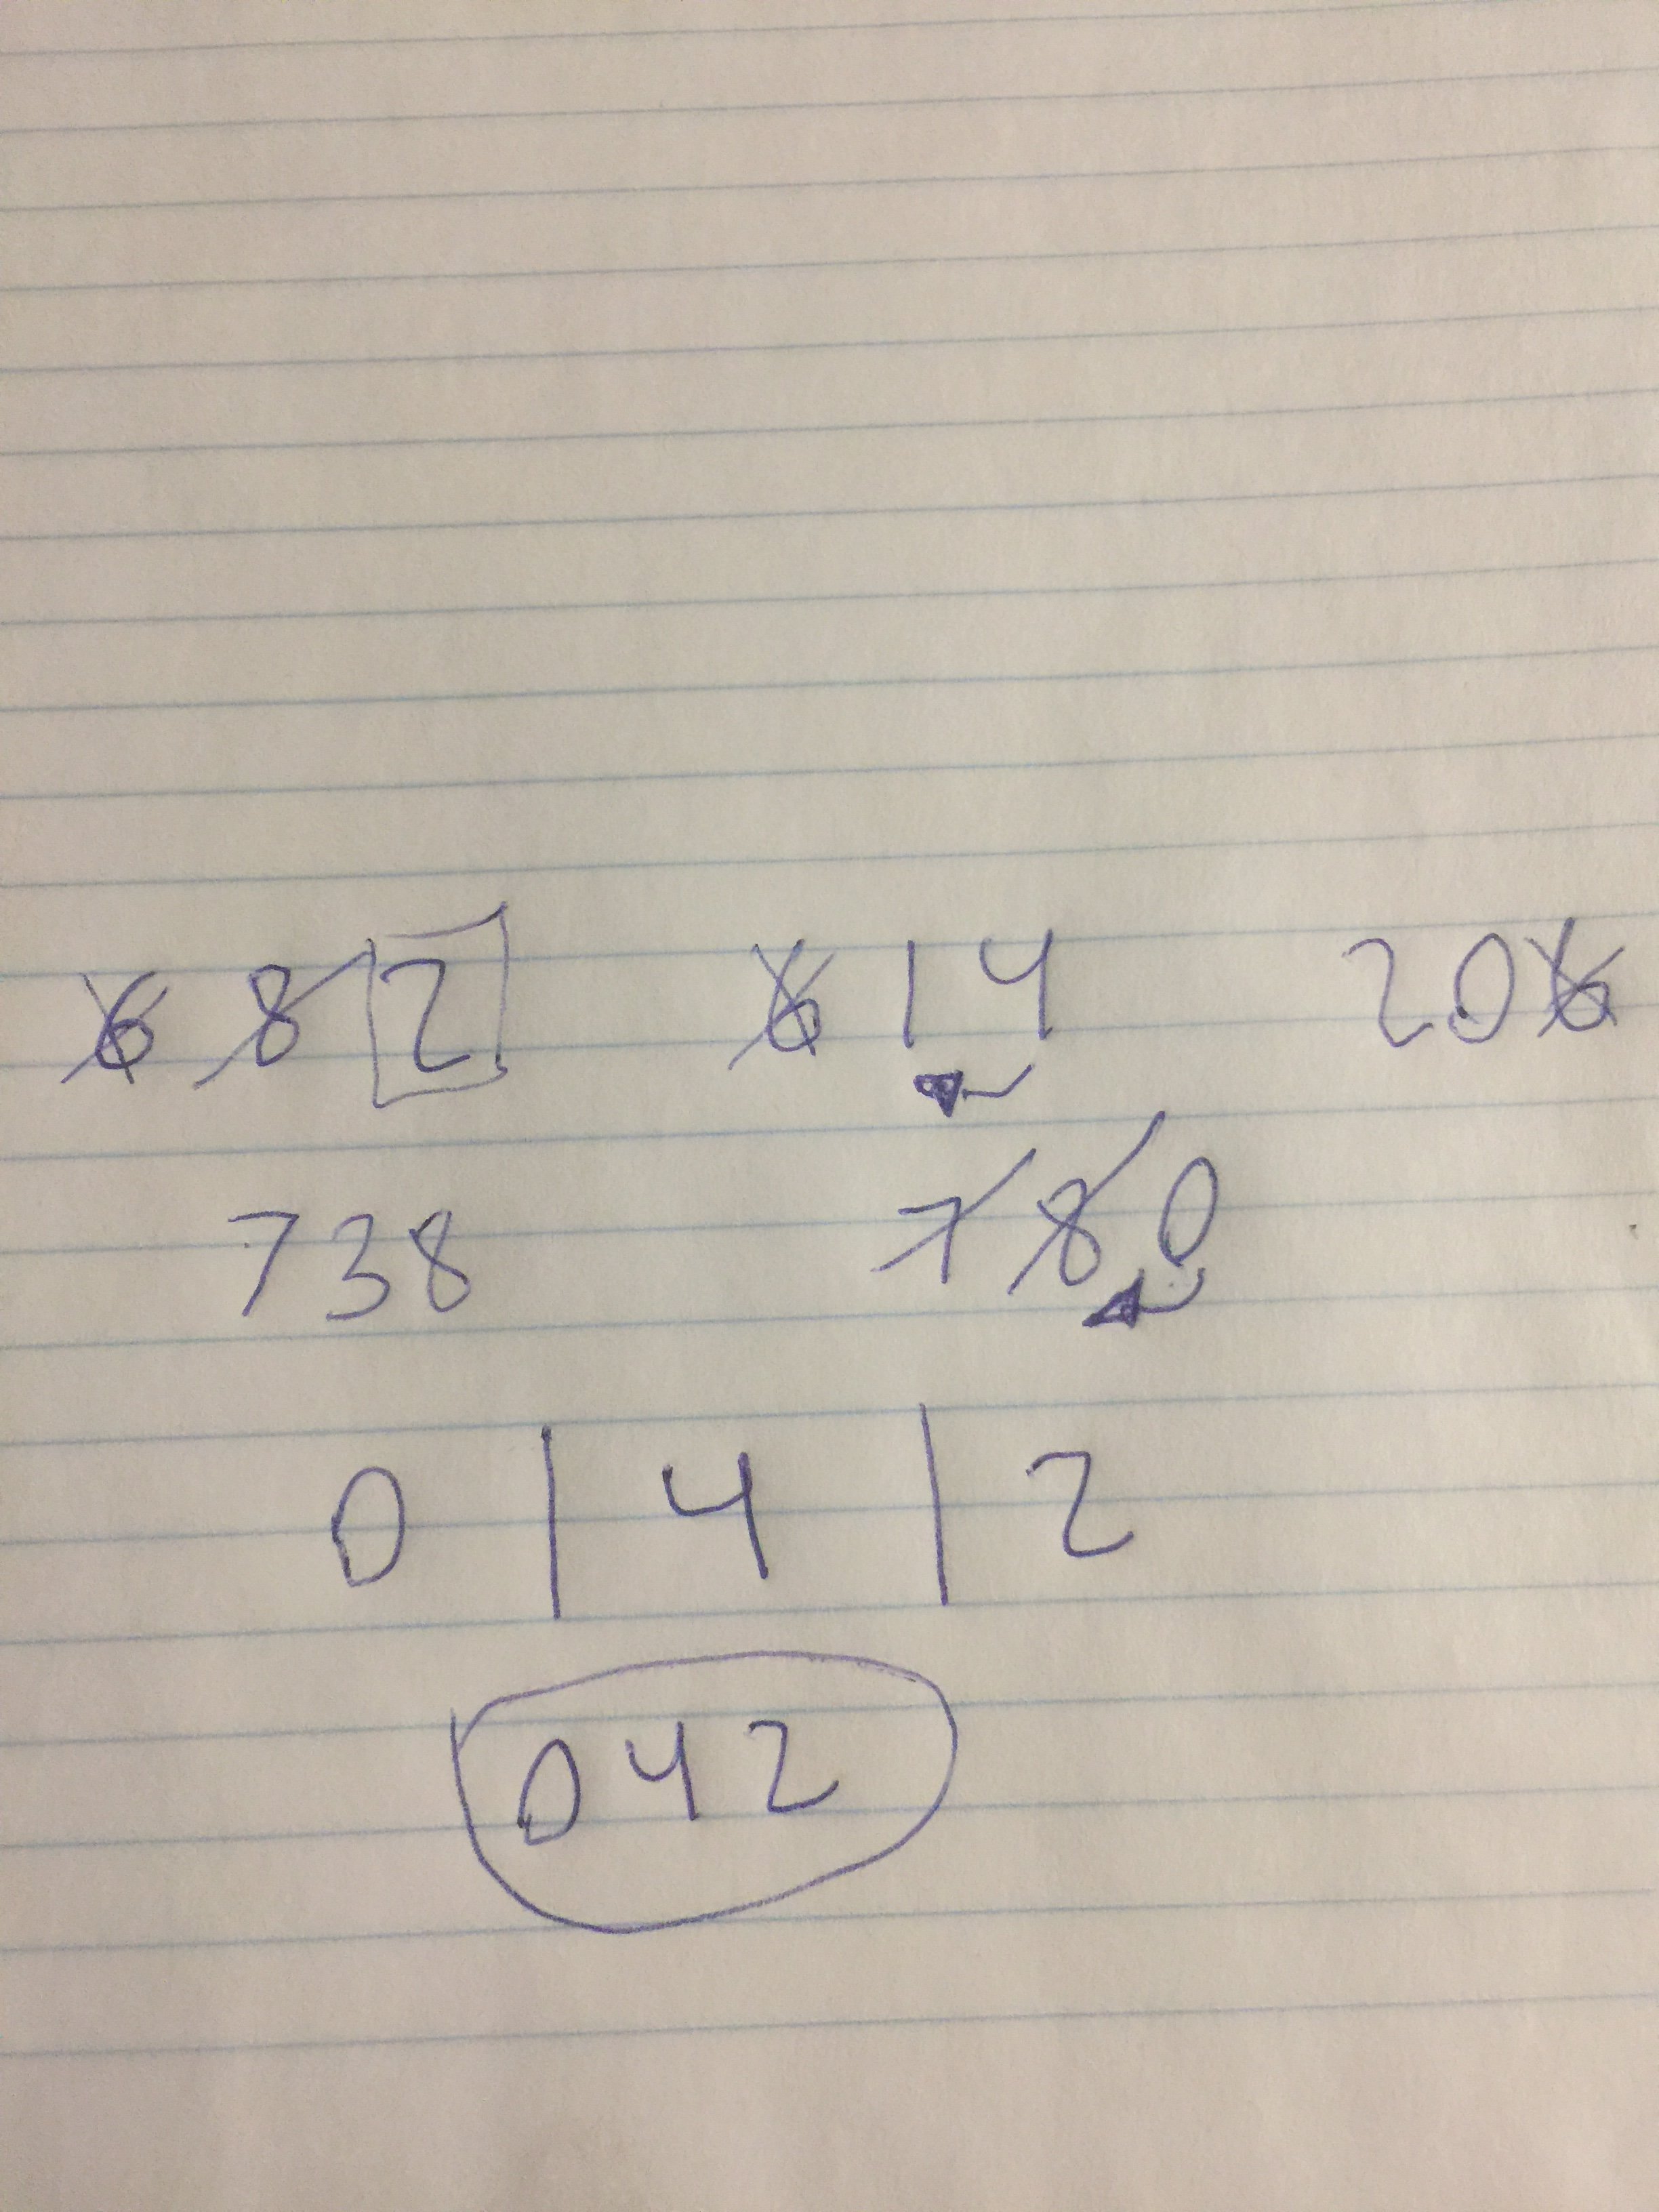 682 614 206
738 780
0 | 4 | 2
042